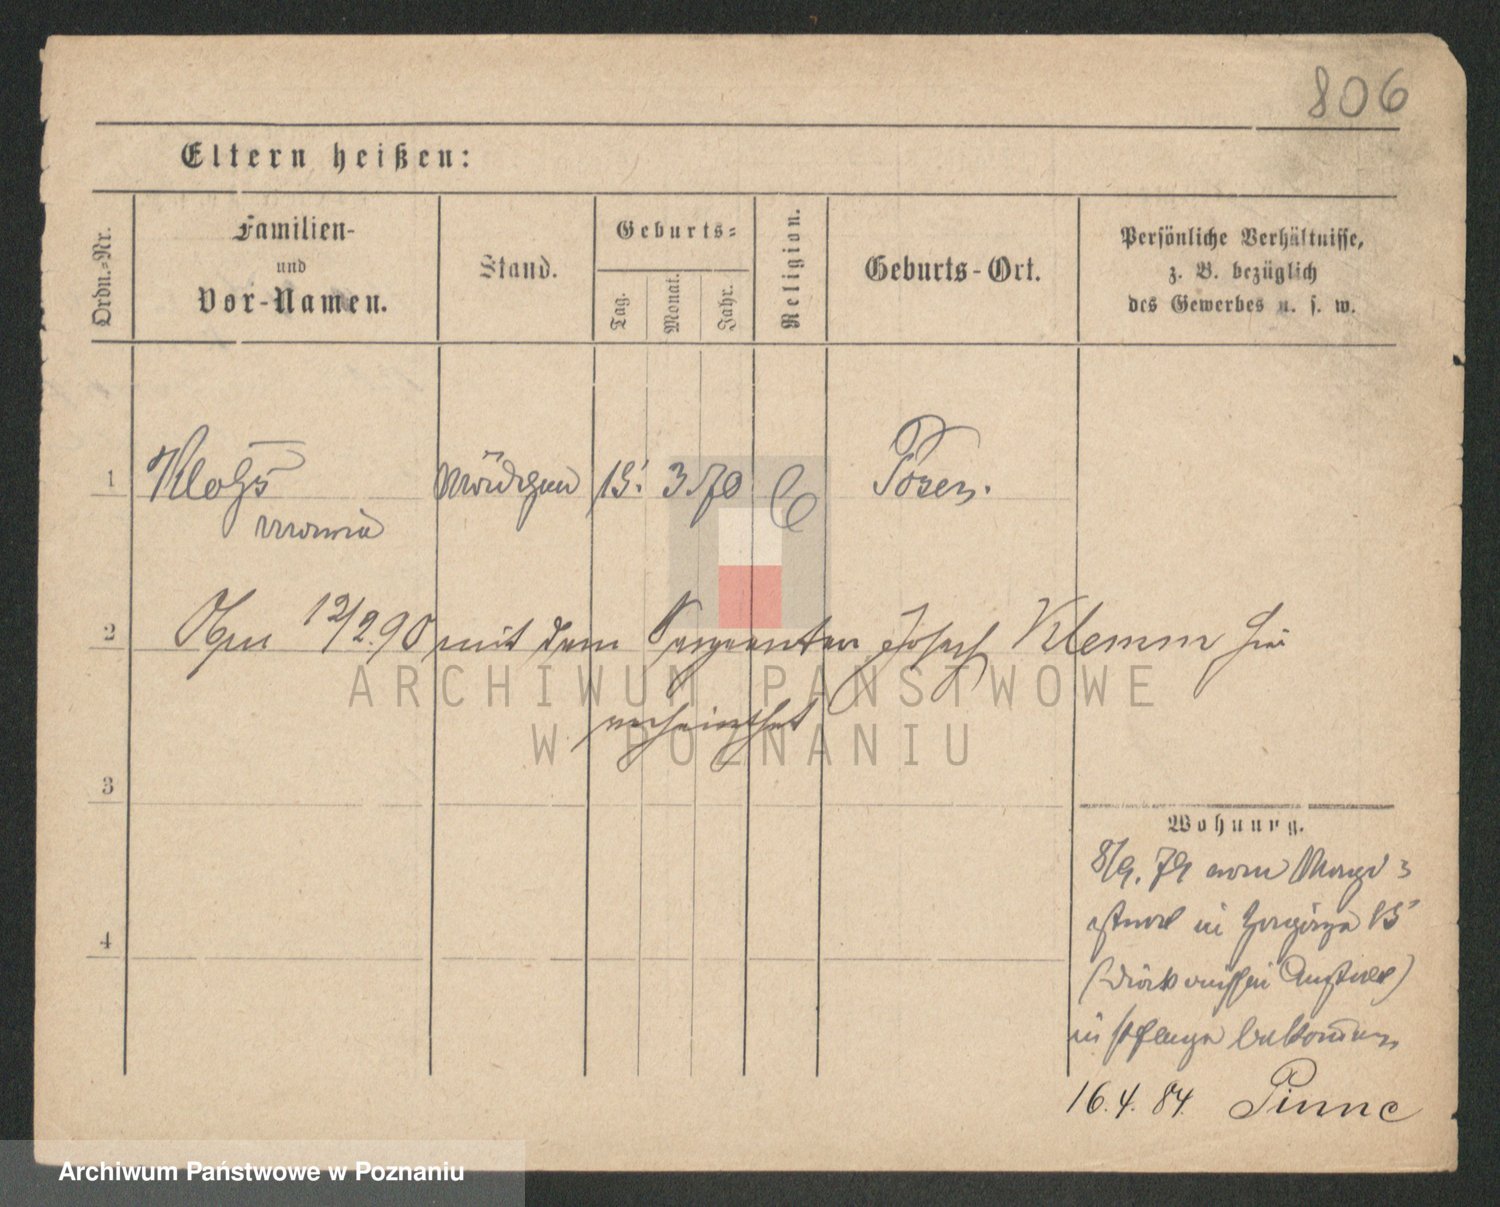 806
Eltern heißen:
Ordn.-Nr.
Familien-
und
Vor-Namen.
Stand.
Geburts-
Tag.
Monat.
Jahr.
Religion.
Geburts-Ort.
Persönliche Verhältnisse,
z. B. bezüglich
des Gewerbes u. s. w.
1
Mädchen 15. 3. 70 Posen.
2
12/2.90 mit dem Sergeanten Josef Klemm hier
verheirathet
3
4
Wohnung.
8/9. 79 vom
in 15
in Pflege bekommen
16. 4. 84. Pinne
ARCHIWUM PAŃSTWOWE
W POZNANIU
Archiwum Państwowe w Poznaniu